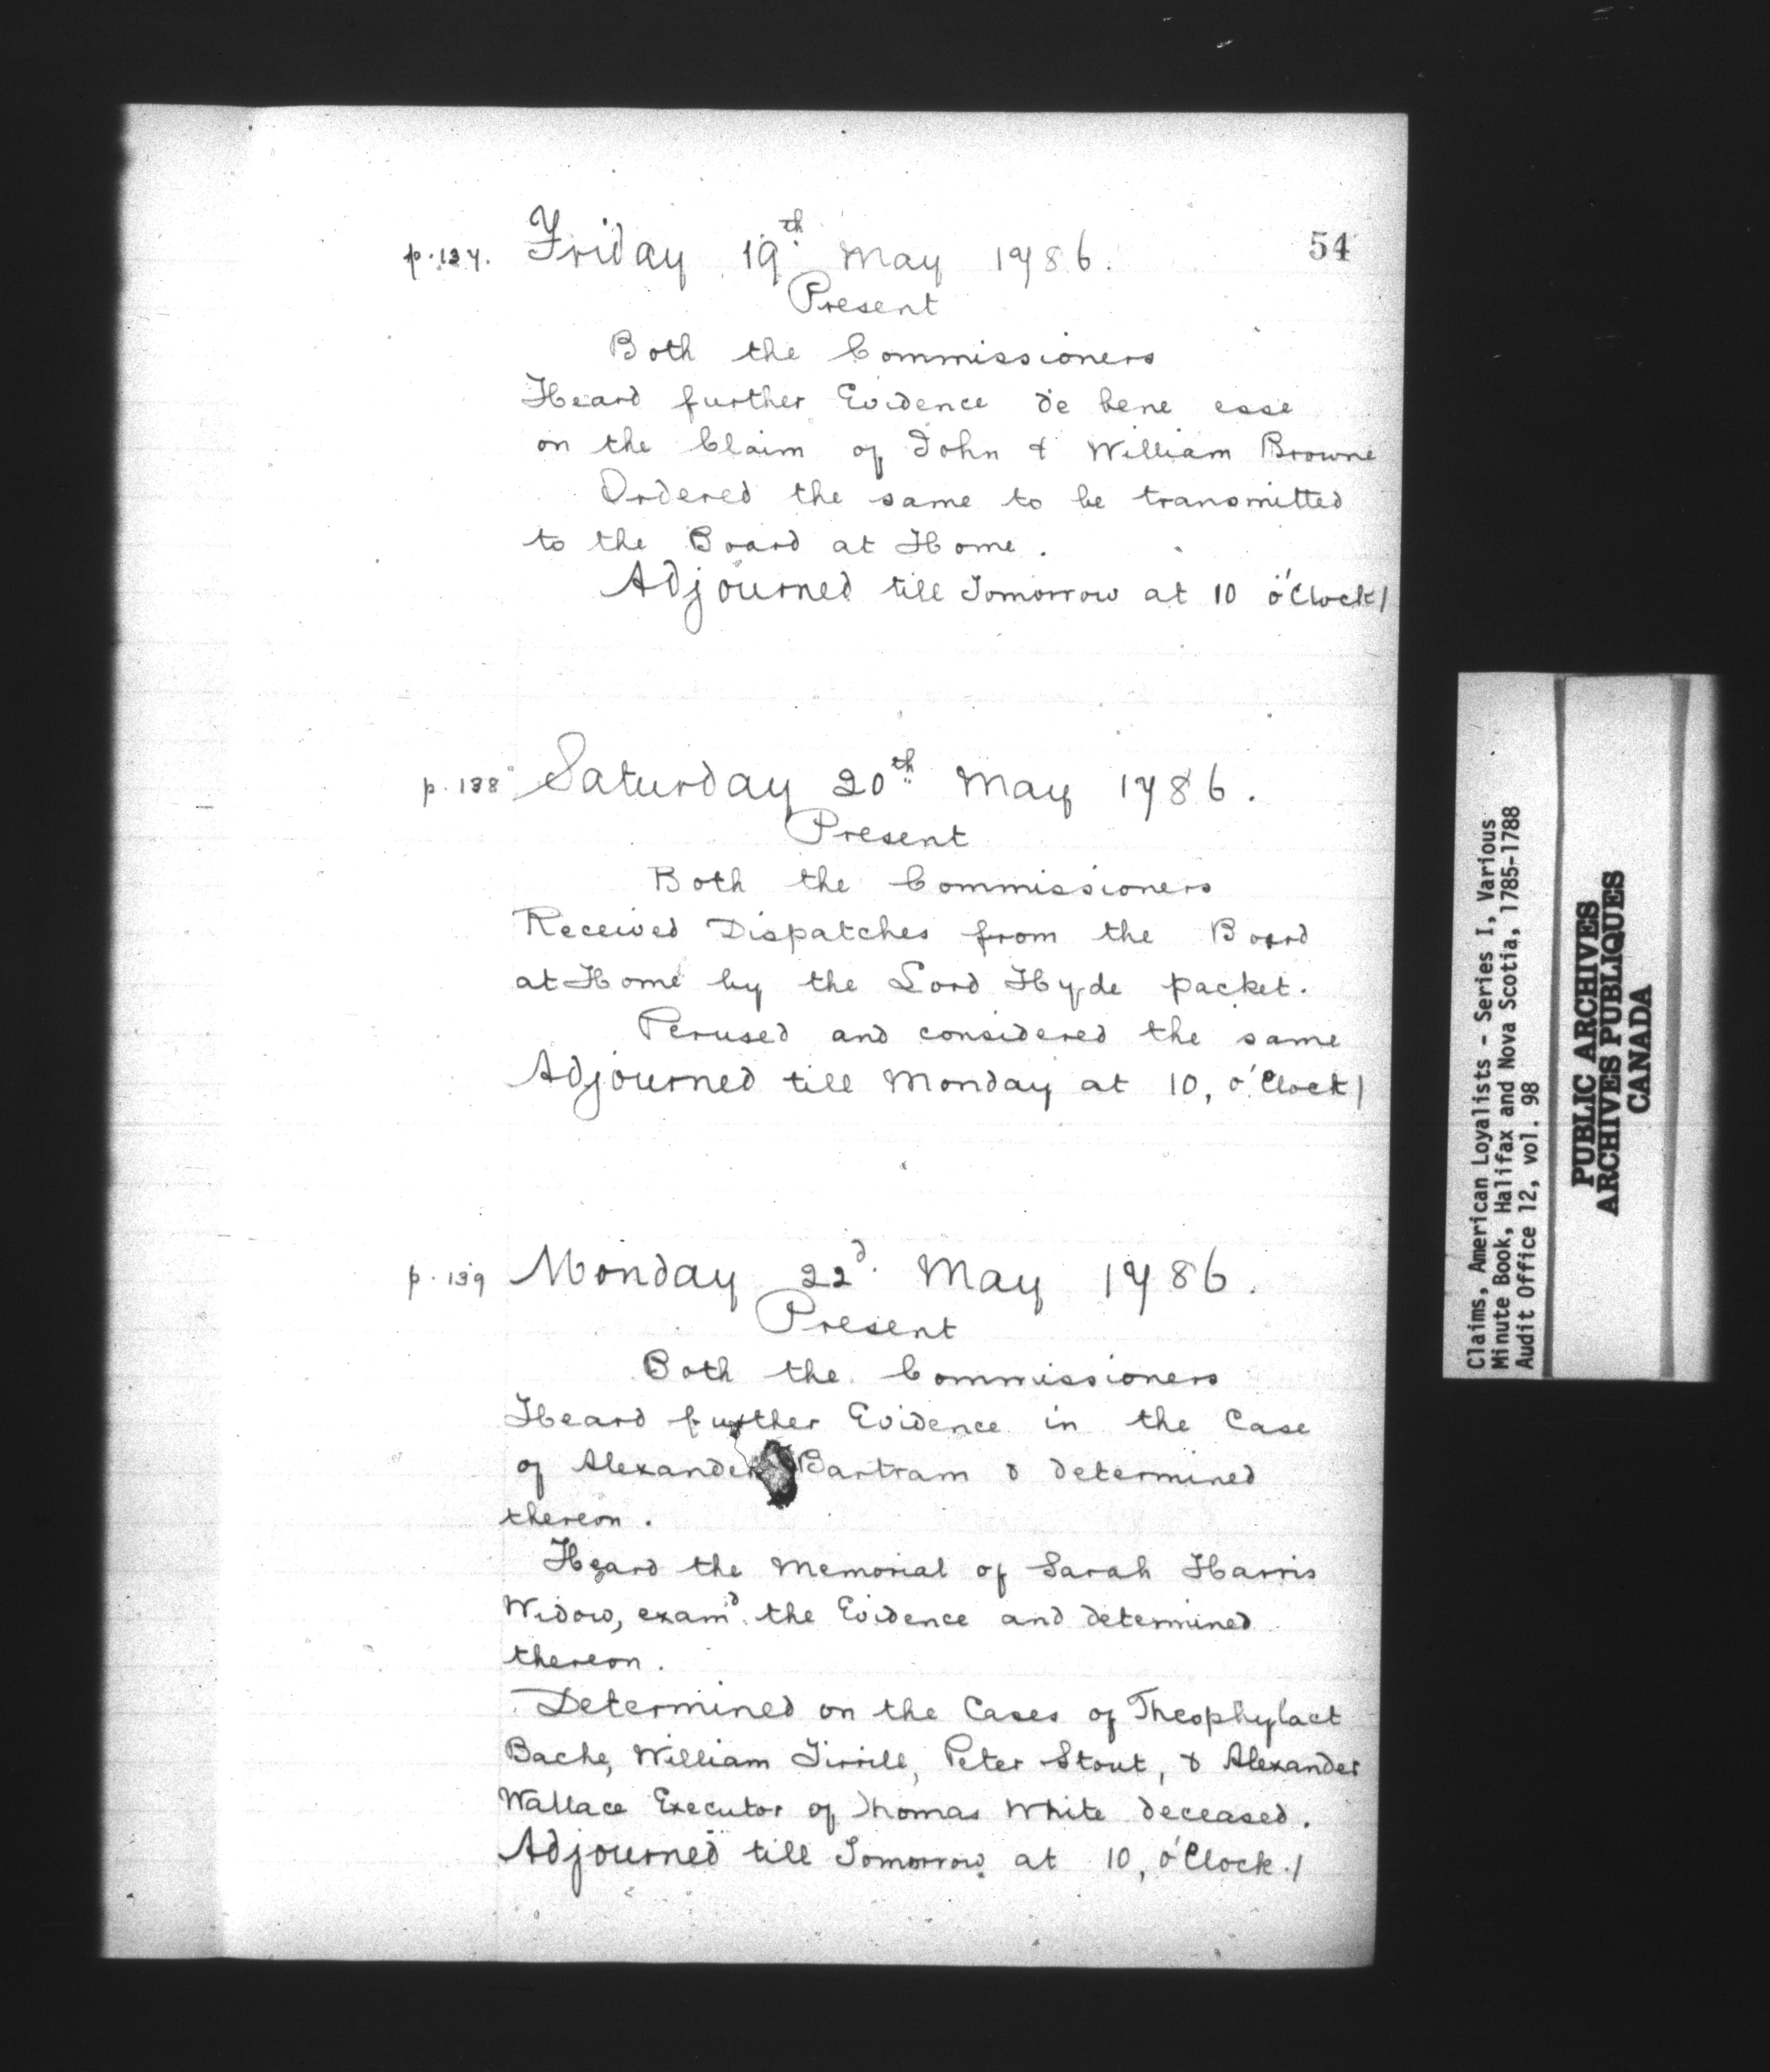 54
p. 137. Friday 19th May 1786.
Present
Both the Commissioners
Heard further Evidence de bene esse
on the Claim of John & William Browne
Ordered the same to be transmitted
to the Board at Home.
Adjourned till Tomorrow at 10 o'Clock/
p. 138 Saturday 20th May 1786.
Present
Both the Commissioners
Received Dispatches from the Board
at Home by the Lord Hyde packet.
Perused and considered the same
Adjourned till Monday at 10, o'Clock/
p. 139 Monday 22d. May 1786.
Present
Both the Commissioners
Heard further Evidence in the Case
of Alexander Bartram & determined
thereon.
Heard the Memorial of Sarah Harris
Widow, examd. the Evidence and determined
thereon.
Determined on the Cases of Theophylact
Bache, William Tirrill, Peter Stout, & Alexander
Wallace Executor of Thomas White deceased.
Adjourned till Tomorrow at 10, o'Clock./
Claims, American Loyalists - Series I, Various
Minute Book, Halifax and Nova Scotia, 1785-1788
Audit Office 12, vol. 98
PUBLIC ARCHIVES
ARCHIVES PUBLIQUES
CANADA